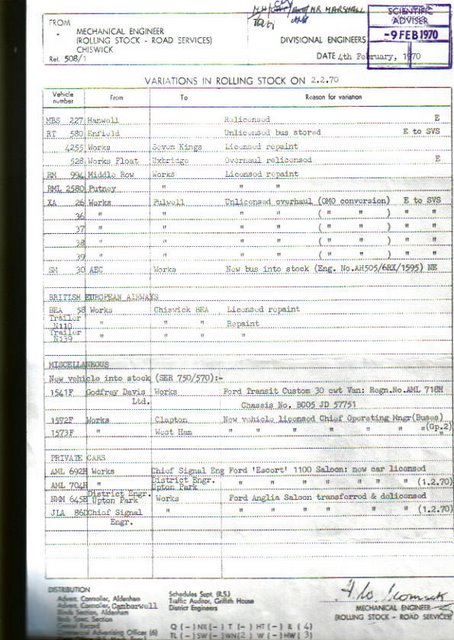 FROM
MECHANICAL ENGINEER
(ROLLING STOCK - ROAD SERVICES)
CHISWICK
Ref. 508/1
MR MARSHALL
DIVISIONAL ENGINEERS
SCIENTIFIC
ADVISER
-9 FEB 1970
DATE 4th February, 1970
VARIATIONS IN ROLLING STOCK ON 2.2.70
Vehicle number From To Reason for variation
MBS 227 Hanwell Relicensed E
RT 580 Enfield Unlicensed bus stored E to SVS
4255 Works Seven Kings Licensed repaint
528 Works Float Uxbridge Overhaul relicensed E
RM 994 Middle Row Works Licensed repaint
RML 2580 Putney " " "
XA 26 Works Fulwell Unlicensed overhaul (OMO conversion) E to SVS
36 " " " " ( " " ) " "
37 " " " " ( " " ) " "
38 " " " " ( " " ) " "
39 " " " " ( " " ) " "
SM 30 AEC Works New bus into stock (Eng. No.AH505/68X/1595) NE
BRITISH EUROPEAN AIRWAYS
BEA 58 Works Chiswick BEA Licensed repaint
Trailer N110 " " " Repaint
Trailer N139 " " " "
MISCELLANEOUS
New vehicle into stock (SER 750/570):-
1541F Godfrey Davis Ltd. Works Ford Transit Custom 30 cwt Van: Regn.No.AML 718H
Chassis No. BD05 JD 57751
1572F Works Clapton New vehicle licensed Chief Operating Mngr(Buses)
1573F " West Ham " " " " " " "(Op.2)
PRIVATE CARS
AML 692H Works Chief Signal Eng Ford 'Escort' 1100 Saloon: now car licensed
AML 704H " District Engr. Upton Park " " " " " " (1.2.70)
NHM 645B District Engr. Upton Park Works Ford Anglia Saloon transferred & delicensed
JLA 86D Chief Signal Engr. " " " " " " (1.2.70)
DISTRIBUTION
Advert. Controller, Aldenham
Advert. Controller, Camberwell
Body Spec. Section
Central Record
Commercial Advertising Officer (6)
Schedules Supt (R.S.)
Traffic Auditor, Griffith House
District Engineers
MECHANICAL ENGINEER
(ROLLING STOCK - ROAD SERVICES)